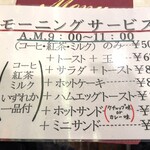 モーニングサービス
A.M.9:00〜11:00
(コーヒ・紅茶・ミルク)のみ―¥50
+トースト+玉
+サラダ+トースト―¥
+ホットケーキ
+ハムエッグトースト
+ホットサンド
+ミニサンド
(コーヒ
紅茶
ミルク
いずれか
一品付)